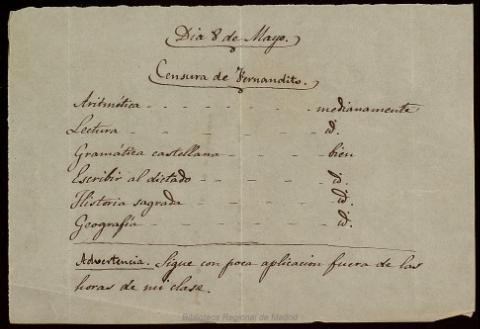 Dia 8 de Mayo.
Censura de Fernandito.
Aritmética . . . . . . . medianamente
Lectura - - - - - - - id.
Gramática castellana - - - - - bien
Escribir al dictado - - - - - id.
Historia sagrada - - - - - id.
Geografía - - - - - - id.
Advertencia. Sigue con poca aplicacion fuera de las
horas de mi clase.
Biblioteca Regional de Madrid